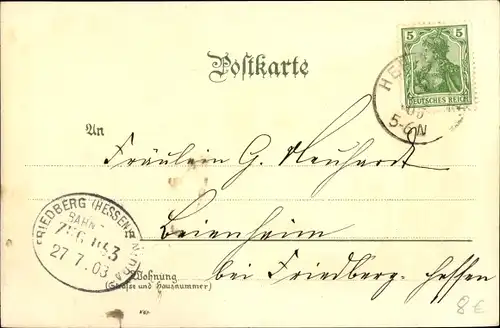 Postkarte
5 5
DEUTSCHES REICH
5-6N
An
Fräulein G. Neuhardt
Beienheim
bei Friedberg. Hessen
FRIEDBERG (HESSEN)-NIDDA
BAHN
ZUG 853
27 7.03
Wohnung
(Straße und Hausnummer)
8€